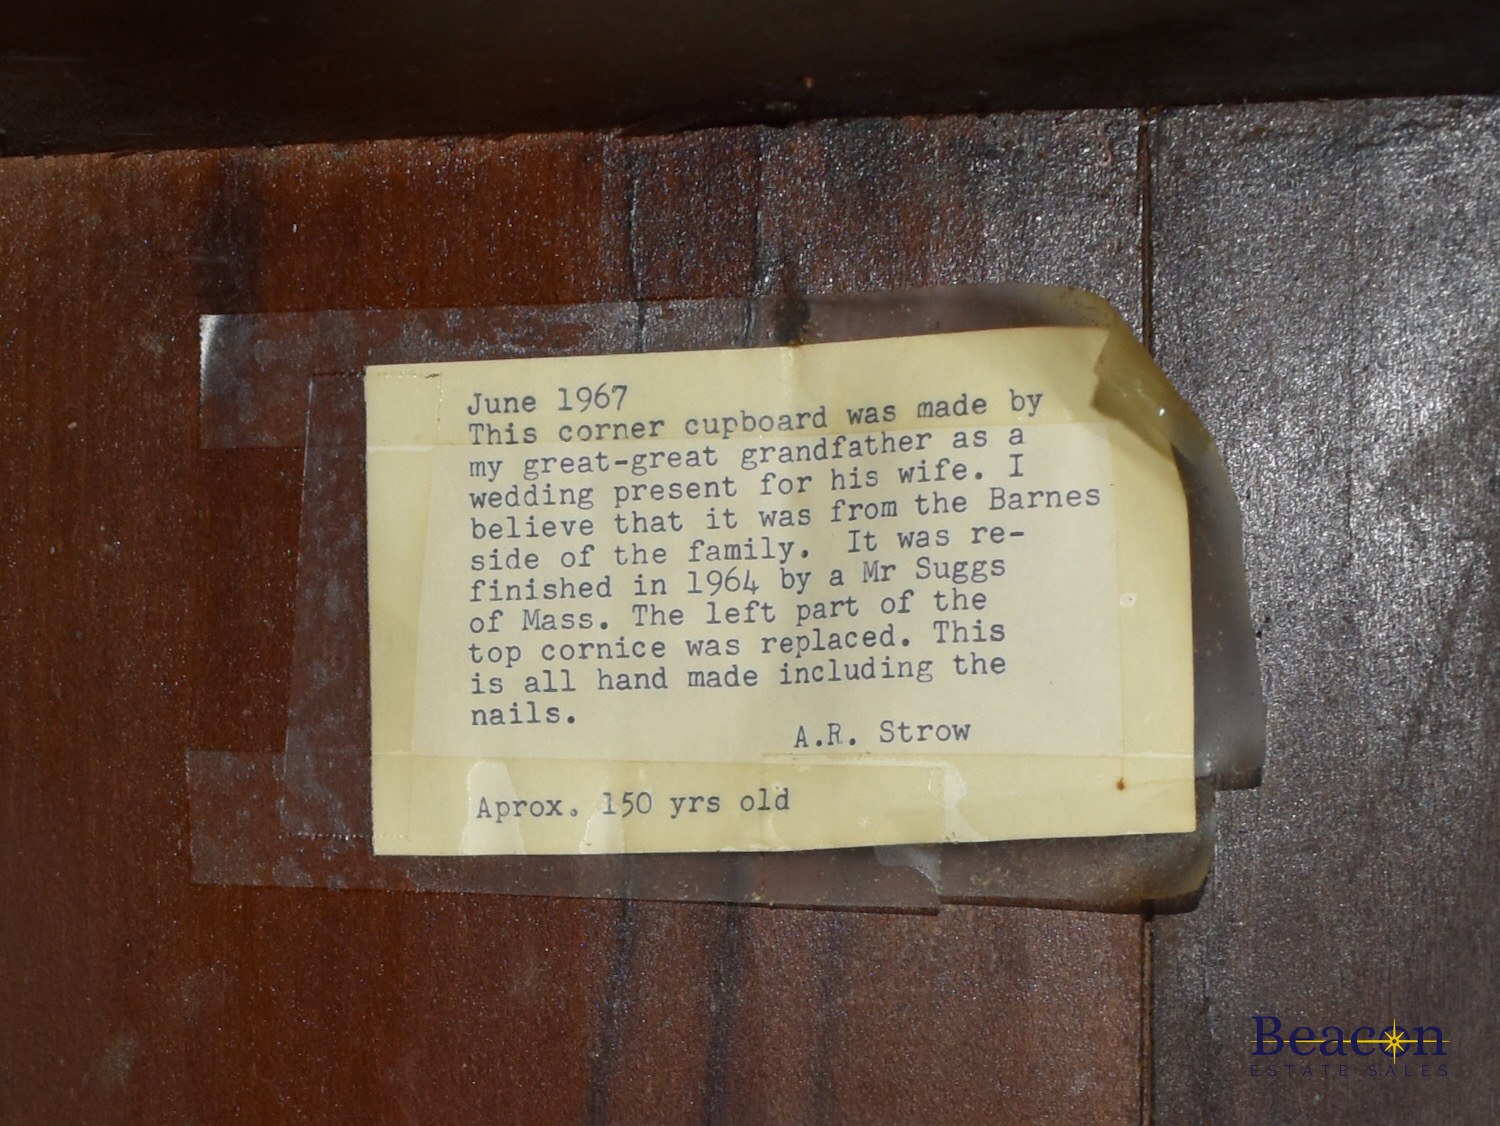 June 1967
This corner cupboard was made by
my great-great grandfather as a
wedding present for his wife. I
believe that it was from the Barnes
side of the family. It was re-
finished in 1964 by a Mr Suggs
of Mass. The left part of the
top cornice was replaced. This
is all hand made including the
nails.
A.R. Strow
Aprox. 150 yrs old
Beacon
ESTATE SALES